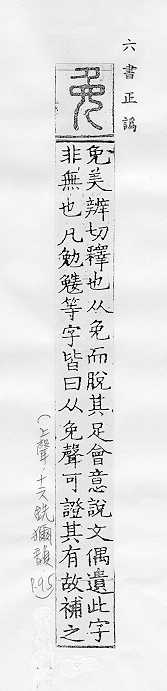 六書正譌
免
免美辨切釋也从免而脫其足會意說文偶遺此字
非無也凡勉鮸等字皆曰从免聲可證其有故補之
(上聲·十六銑獮韻 P.95)